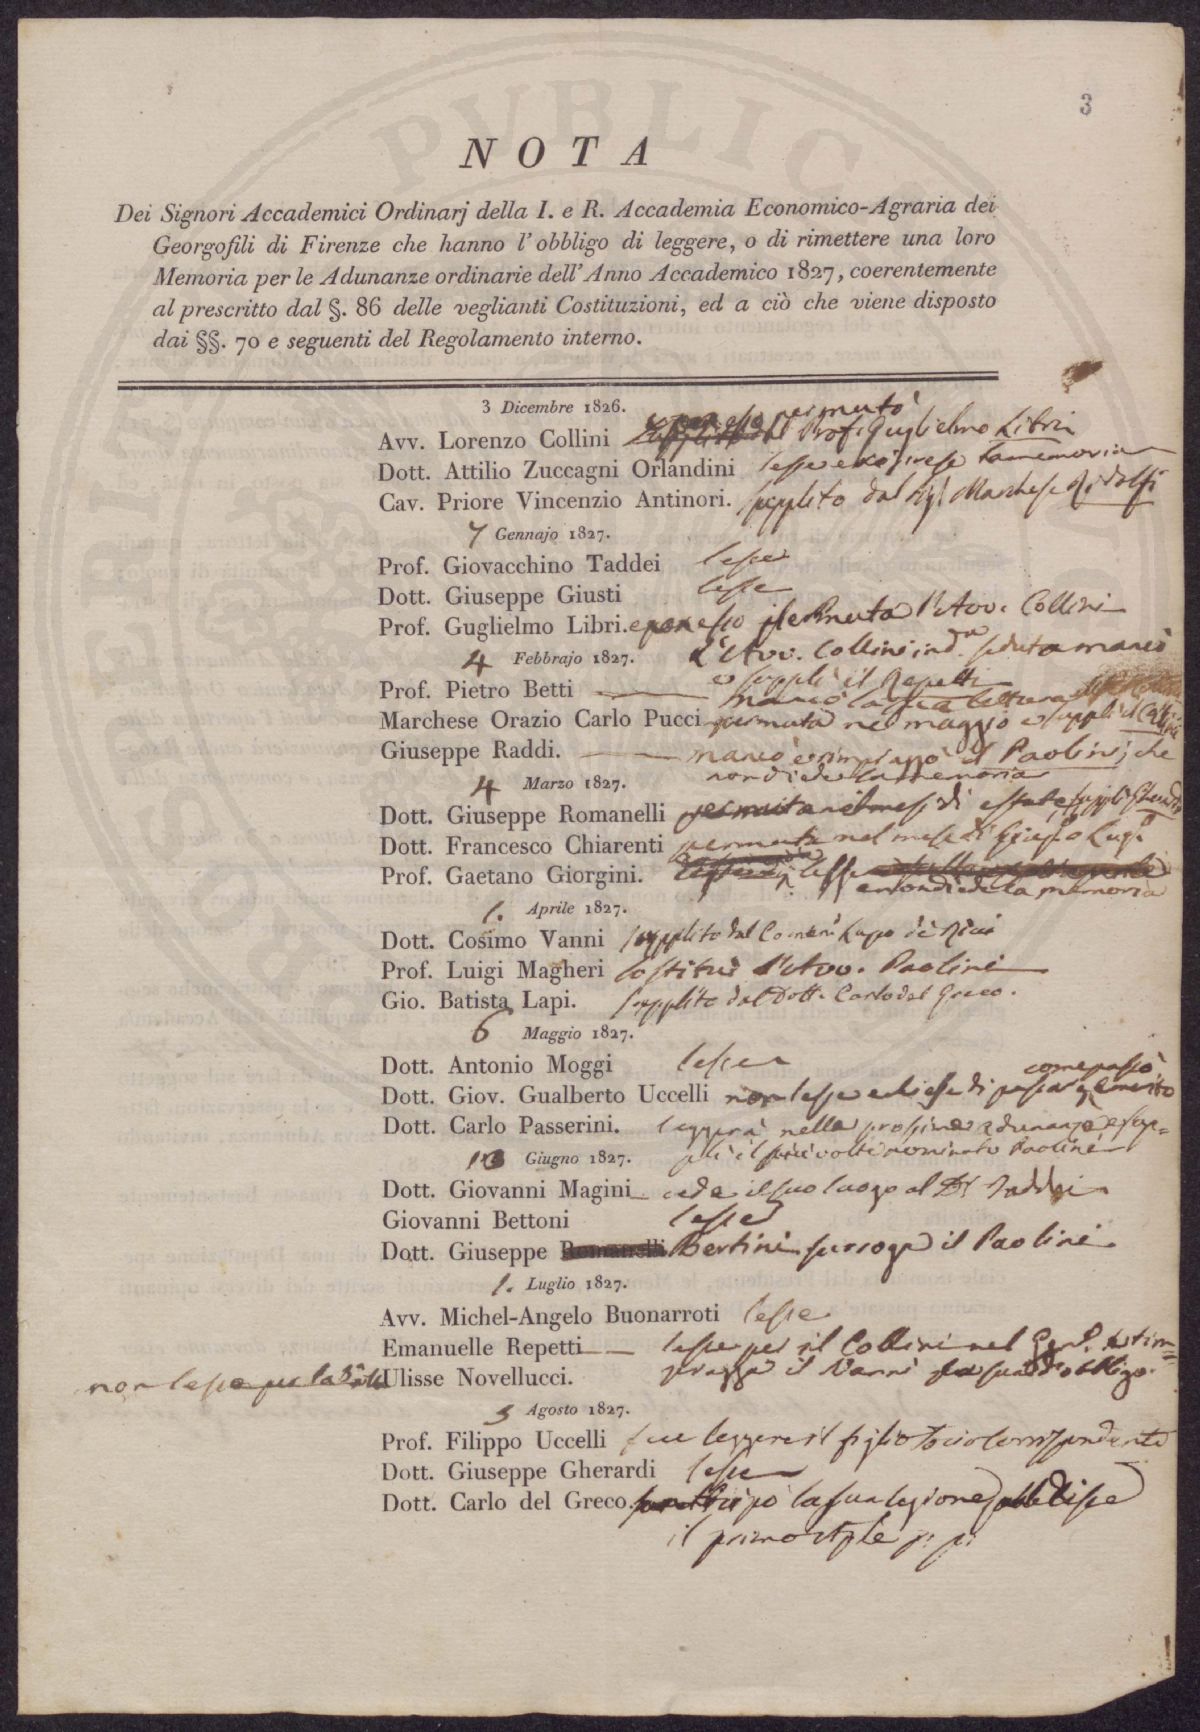 3
NOTA
Dei Signori Accademici Ordinarj della I. e R. Accademia Economico-Agraria dei
Georgofili di Firenze che hanno l'obbligo di leggere, o di rimettere una loro
Memoria per le Adunanze ordinarie dell'Anno Accademico 1827, coerentemente
al prescritto dal §. 86 delle veglianti Costituzioni, ed a ciò che viene disposto
dai §§. 70 e seguenti del Regolamento interno.
3 Dicembre 1826.
permutò
Avv. Lorenzo Collini Prof. Guglielmo Libri
Dott. Attilio Zuccagni Orlandini lesse e la memoria
Cav. Priore Vincenzio Antinori. supplito dal Sig. Marchese Ridolfi
7 Gennajo 1827.
Prof. Giovacchino Taddei lesse
Dott. Giuseppe Giusti lesse
Prof. Guglielmo Libri. e per esso permuta l'Avv. Collini
4 Febbrajo 1827. L'Avv. Collini in d.a seduta mancò
e supplì il Repetti
Prof. Pietro Betti mancò la sua lettura
Marchese Orazio Carlo Pucci permuta nel maggio e supplì il
Giuseppe Raddi. mancò e rimpiazzò il Paolini, che
non diede la memoria
4 Marzo 1827.
Dott. Giuseppe Romanelli permuta nel mese di supplì
Dott. Francesco Chiarenti permuta nel mese di
Prof. Gaetano Giorgini. lesse
e non diede la memoria
1. Aprile 1827.
Dott. Cosimo Vanni supplito dal Lapo de Ricci
Prof. Luigi Magheri sostituì l'Avv. Paolini
Gio. Batista Lapi. supplito dal Dott. Carlo del Greco.
6 Maggio 1827.
Dott. Antonio Moggi lesse
come passò
Dott. Giov. Gualberto Uccelli non lesse e chiese di passar emerito
Dott. Carlo Passerini. leggerà nella prossima adunanza e sup=
plì il più volte nominato Paolini
10 Giugno 1827.
Dott. Giovanni Magini cede il suo luogo al Dr Taddei
Giovanni Bettoni lesse
Dott. Giuseppe Romanelli Bertini surroga il Paolini
1. Luglio 1827.
Avv. Michel-Angelo Buonarroti lesse
Emanuelle Repetti lesse per il Collini nel e rim=
piazza il Vanni sua d'obbligo.
non lesse per la Ulisse Novellucci.
5 Agosto 1827.
Prof. Filippo Uccelli fece leggere il figlio Socio Corrispondente
Dott. Giuseppe Gherardi lesse
Dott. Carlo del Greco. anticipò la sua lezione e lesse
il primo Aple p. p.